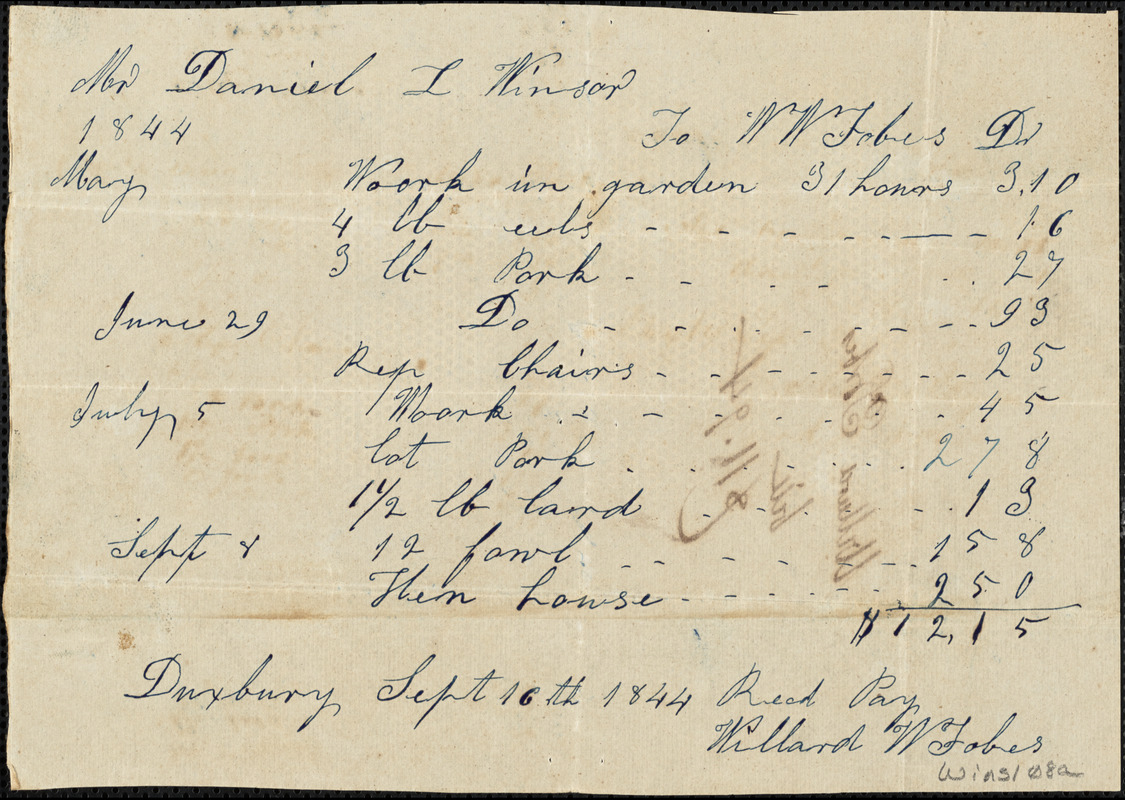 Mr Daniel L Winsor
1844 To W W Fobes Dr
May Woork in garden 31 hours 3,10
4 lb eels 16
3 lb Pork 27
June 29 Do 93
Rep Chairs 25
July 5 Woork 45
lot Pork 2 78
1 1/2 lb lard 13
Sept 8 12 fowl 1 58
Hen house 2 50
$12,15
Duxbury Sept 16th 1844 Recd Pay
Willard W Fobes
Wins108a